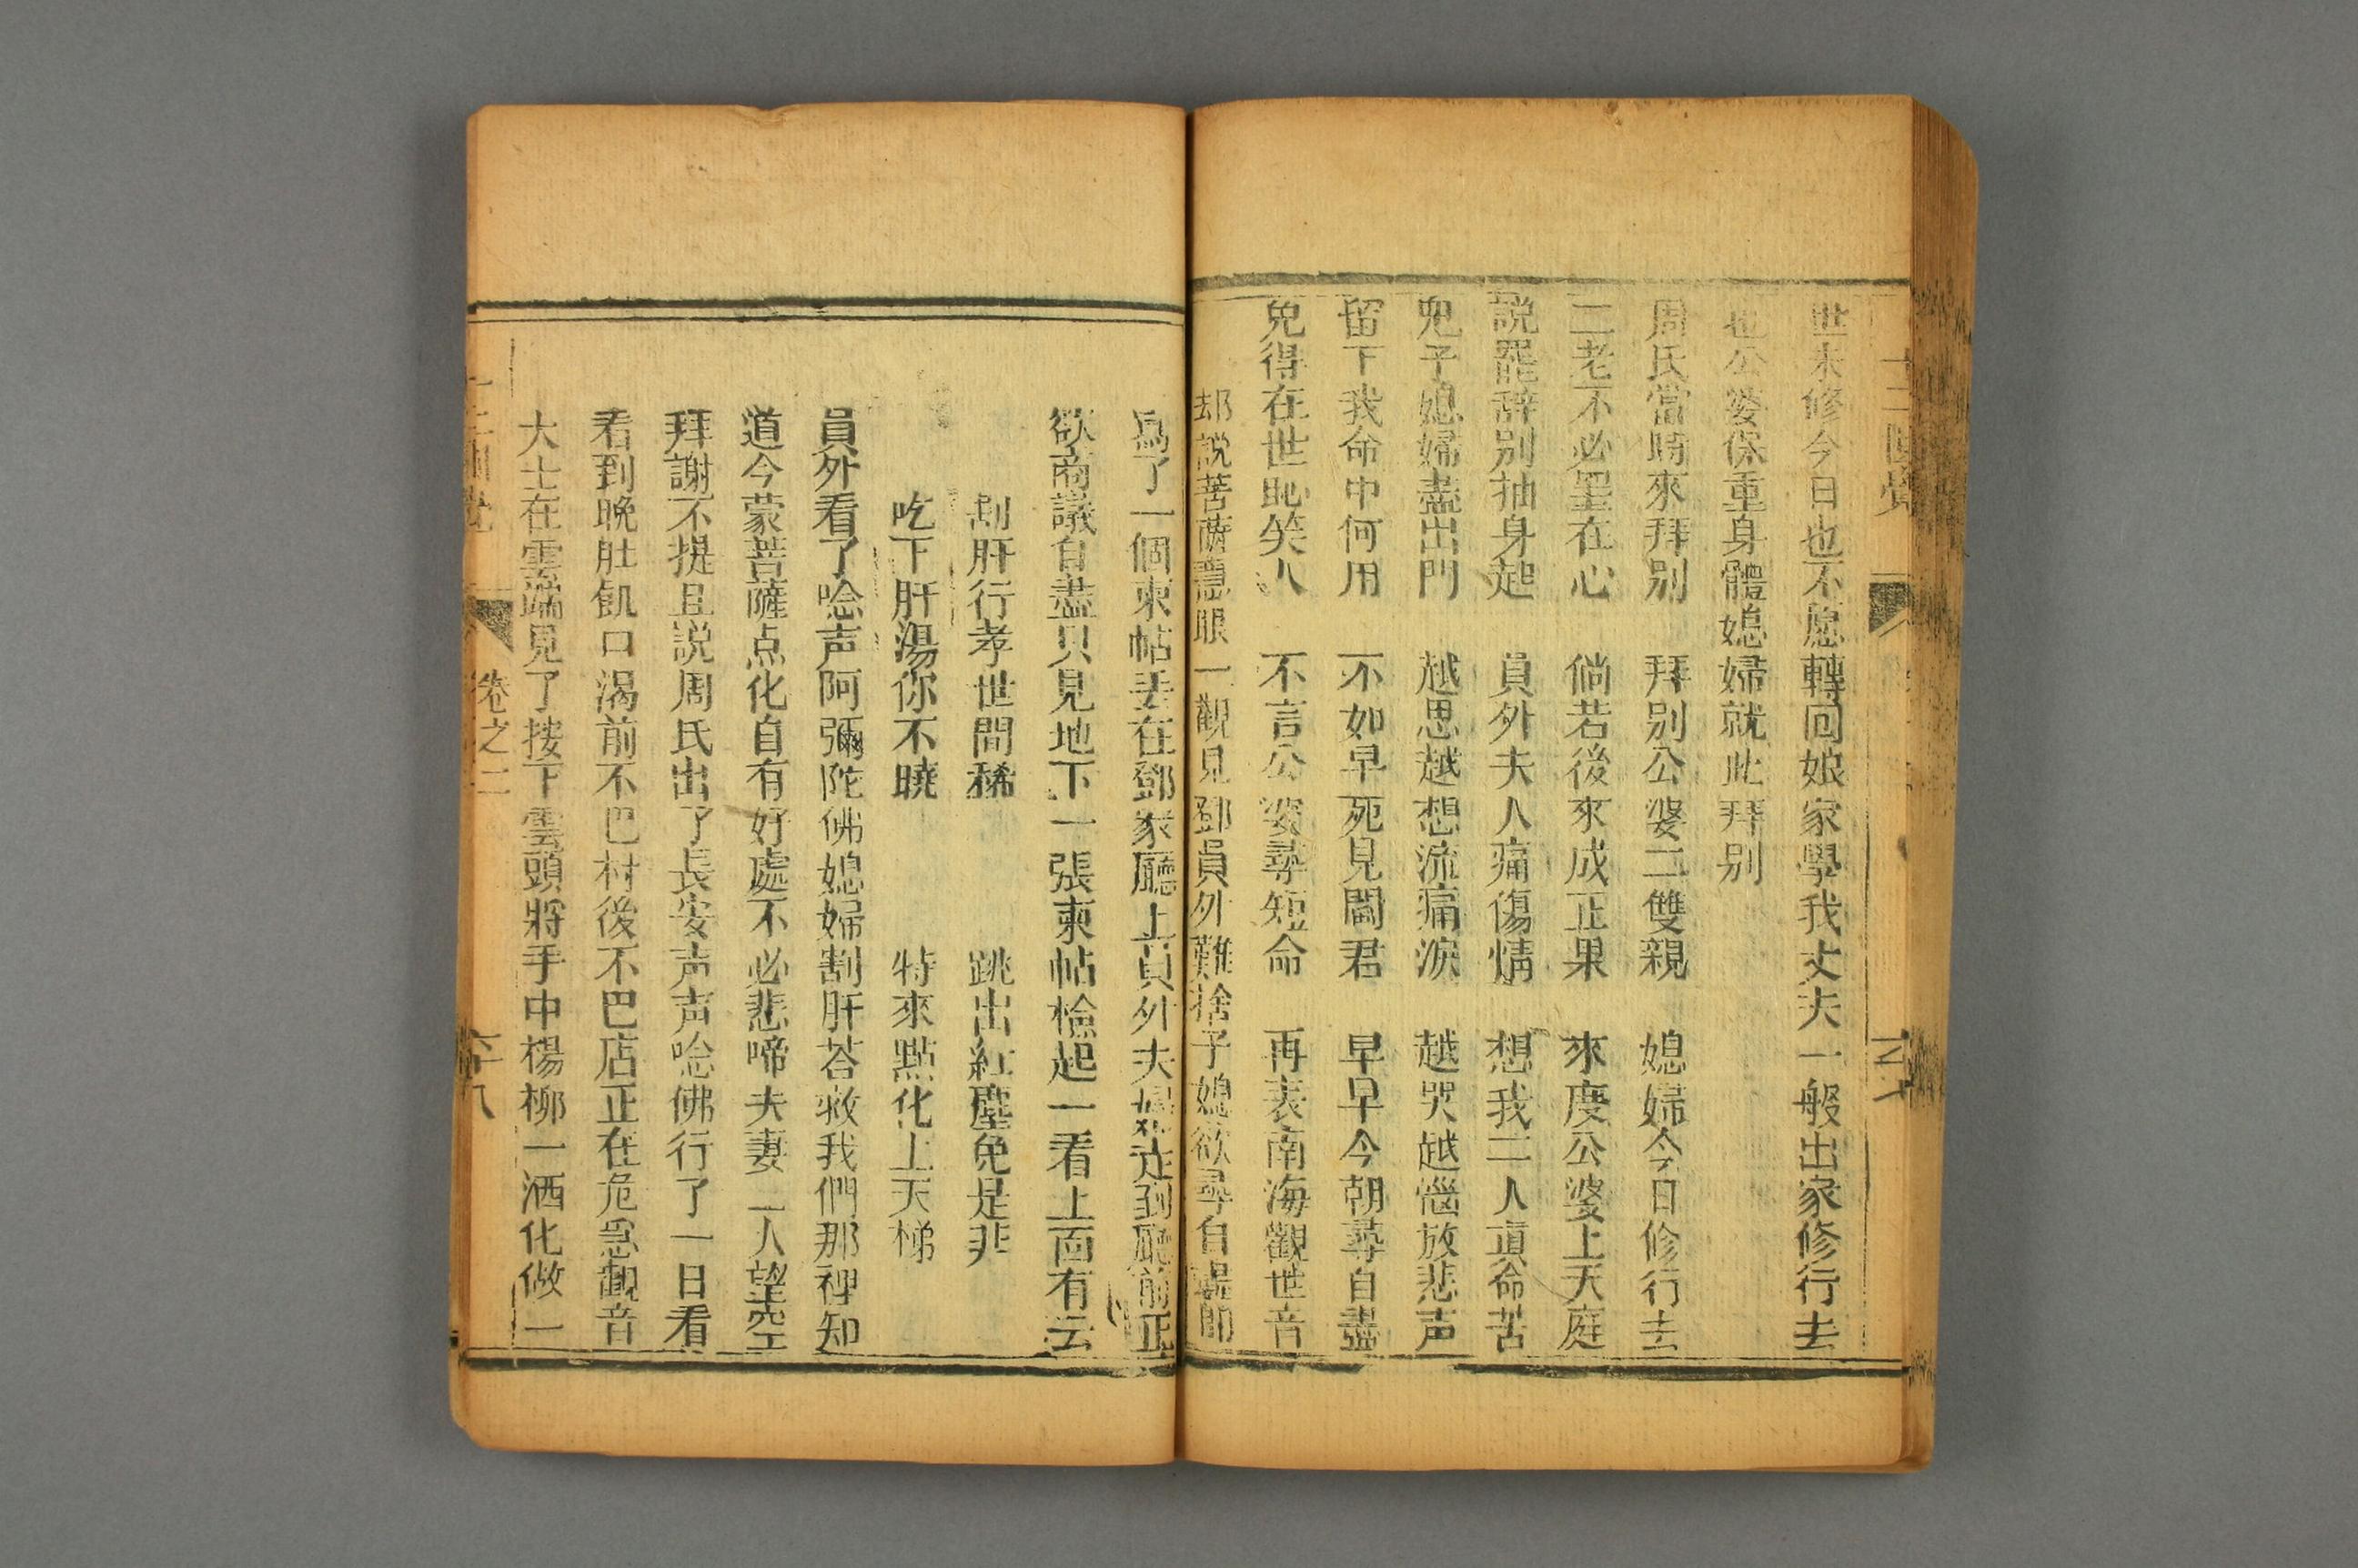 世未修今日也不愿轉回娘家學我丈夫一般出家修行去
也公婆保重身體媳婦就此拜别
周氏當時來拜别　拜别公婆二雙親　媳婦今日修行去
二老不必墨在心　倘若後來成正果　來度公婆上天庭
説罷辞别抽身起　員外夫人痛傷情　想我二人真命苦
兒子媳婦盡出門　越思越想流痛淚　越哭越惱放悲声
留下我命中何用　不如早死見閻君　早早今朝尋自盡
免得在世恥笑人　不言公婆尋短命　再表南海觀世音
却説菩薩慧眼一觀見鄧員外難捨子媳欲尋自
為了一個柬帖丢在鄧家廳上員外夫婦走到廳前正
欲商議自盡只見地下一張柬帖檢起一看上面有云
割肝行孝世間稀　跳出紅塵免是非
吃下肝湯你不曉　特來點化上天梯
員外看了唸声阿彌陀佛媳婦割肝荅救我們那裡知
道今蒙菩薩点化自有好處不必悲啼夫妻二人望空
拜謝不提且説周氏出了長安声声唸佛行了一日看
看到晚肚飢口渴前不巴村後不巴店正在危急觀音
大士在雲端見了按下雲頭將手中楊柳一洒化做一
卷之二